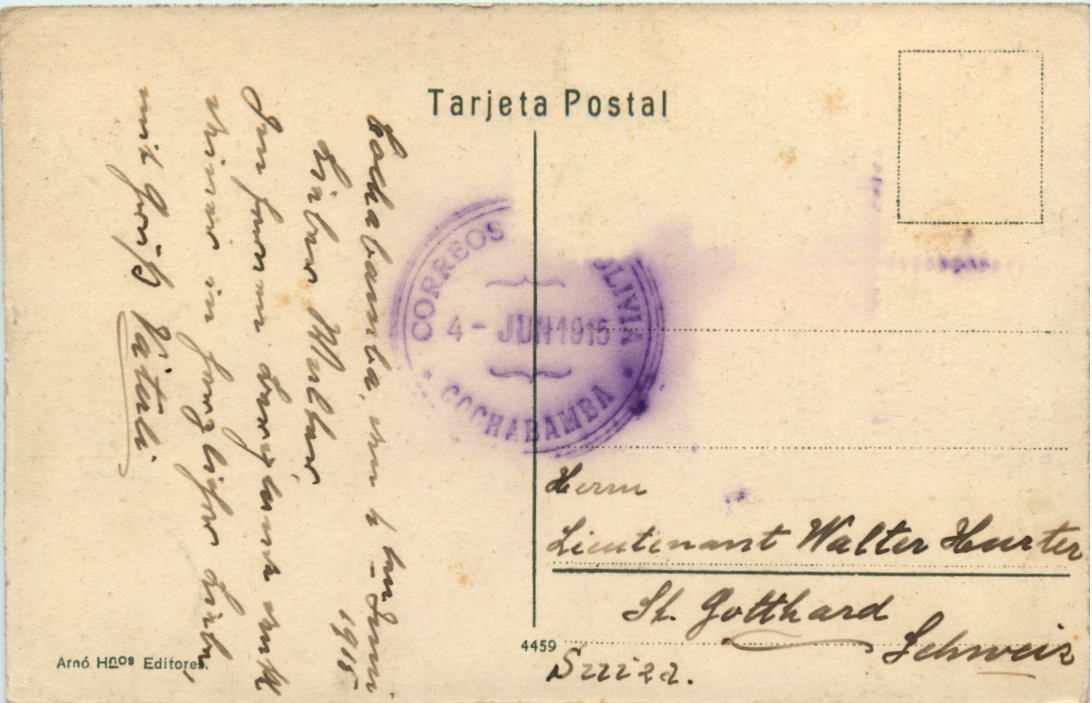 Tarjeta Postal
Cochabamba, den 4 ten Juni
1915
Lieber Walter,
denkt
Deiner in herzlicher Liebe,
mit Gruß
CORREOS OLIVIA
4 - JUN 1915
COCHABAMBA
Herrn
Lieutenant Walter Hurter
St. Gotthard
Schweiz
Suiza.
4459
Arnó Hnos Editores.